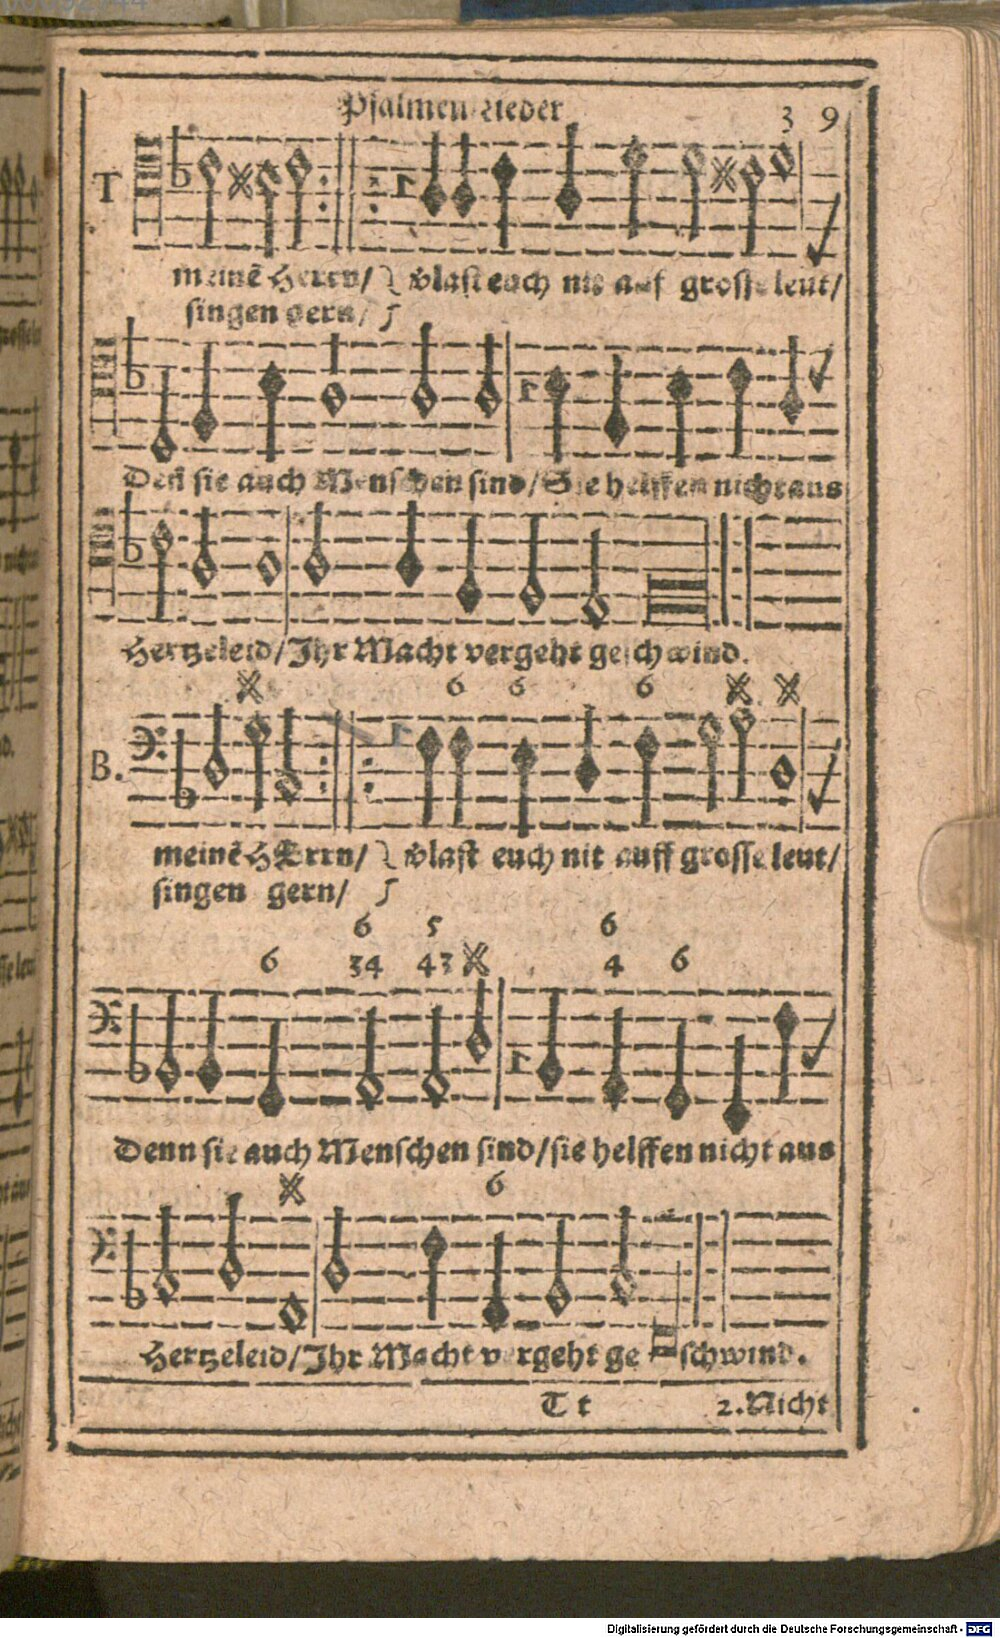 Psalmen Lieder 39
T
meinē Herrn/ vlast euch nit auf grosse leut/
singen gern/
Den sie auch Menschen sind/Sie helffen nicht aus
Hertzeleid/Ihr Macht vergeht geschwind.
6 6 6
B.
meinē HErrn/ vlast euch nit auff grosse leut/
singen gern/
6 5 6
6 34 43 4 6
Denn sie auch Menschen sind/sie helffen nicht aus
6
Hertzeleid/Ihr Macht vergeht ge schwind.
T t 2.Nicht
Digitalisierung gefördert durch die Deutsche Forschungsgemeinschaft - DFG